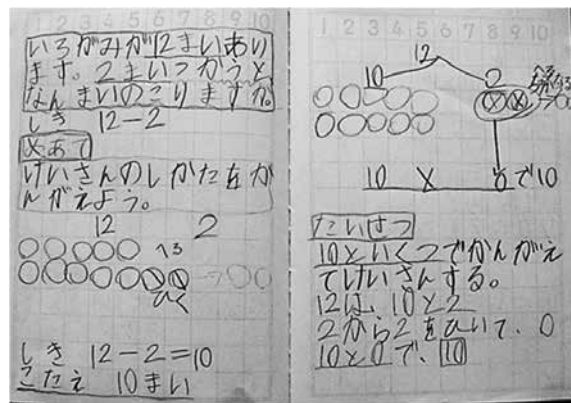 1 2 3 4 5 6 7 8 9 10
いろがみが12まいあり
ます。2まいつかうと
なんまいのこりますか。
しき 12-2
めあて
けいさんのしかたをか
んがえよう。
12 2
へる
ひく
しき 12-2=10
こたえ 10まい
1 2 3 4 5 6 7 8 9 10
12
10 2
10 と 0で10
たいせつ
10といくつでかんがえ
てけいさんする。
12は、10と2
2から2をひいて、0
10と0で、10